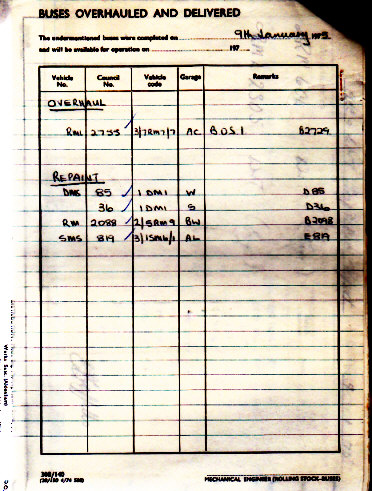 BUSES OVERHAULED AND DELIVERED
The undermentioned buses were completed on 9th January 1975
and will be available for operation on 197
Vehicle No. Council No. Vehicle code Garage Remarks
OVERHAUL
RML 2755 3/7RM7/7 AC BOSI B2729
REPAINT
DMS 85 1DM1 W D85
36 1DM1 S D36
RM 2088 2/5RM9 BW B2098
SMS 819 AL E819
MECHANICAL ENGINEER (ROLLING STOCK—BUSES)